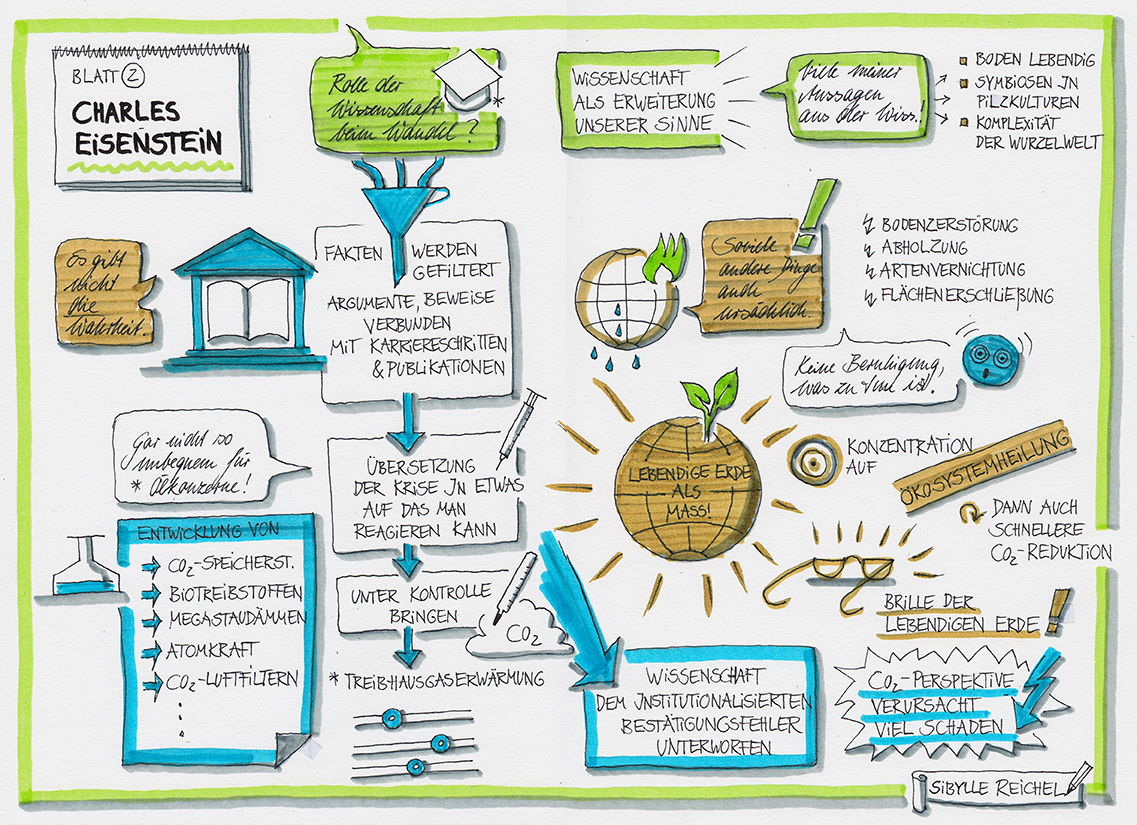 BLATT 2
CHARLES
EISENSTEIN
Rolle der
Wissenschaft
beim Wandel?
*
WISSENSCHAFT
ALS ERWEITERUNG
UNSERER SINNE
Viele meiner
Aussagen
aus der Wiss.!
BODEN LEBENDIG
SYMBIOSEN IN
PILZKULTUREN
KOMPLEXITÄT
DER WURZELWELT
Es gibt
nicht
die
Wahrheit.
FAKTEN WERDEN
GEFILTERT
ARGUMENTE, BEWEISE
VERBUNDEN
MIT KARRIERESCHRITTEN
& PUBLIKATIONEN
Soviele
andere Dinge
auch
ursächlich.
BODENZERSTÖRUNG
ABHOLZUNG
ARTENVERNICHTUNG
FLÄCHENERSCHLIEßUNG
Keine Beruhigung,
was zu tun ist.
Gar nicht so
unbequem für
* Ölkonzerne!
ÜBERSETZUNG
DER KRISE IN ETWAS
AUF DAS MAN
REAGIEREN KANN
LEBENDIGE ERDE
ALS
MASS!
KONZENTRATION
AUF
ÖKOSYSTEMHEILUNG
DANN AUCH
SCHNELLERE
CO2-REDUKTION
ENTWICKLUNG VON
CO2-SPEICHERST.
BIOTREIBSTOFFEN
MEGASTAUDÄMMEN
ATOMKRAFT
CO2-LUFTFILTERN
UNTER KONTROLLE
BRINGEN
CO2
* TREIBHAUSGASERWÄRMUNG
BRILLE DER
LEBENDIGEN ERDE!
WISSENSCHAFT
DEM INSTITUTIONALISIERTEN
BESTÄTIGUNGSFEHLER
UNTERWORFEN
CO2-PERSPEKTIVE
VERURSACHT
VIEL SCHADEN
SIBYLLE REICHEL